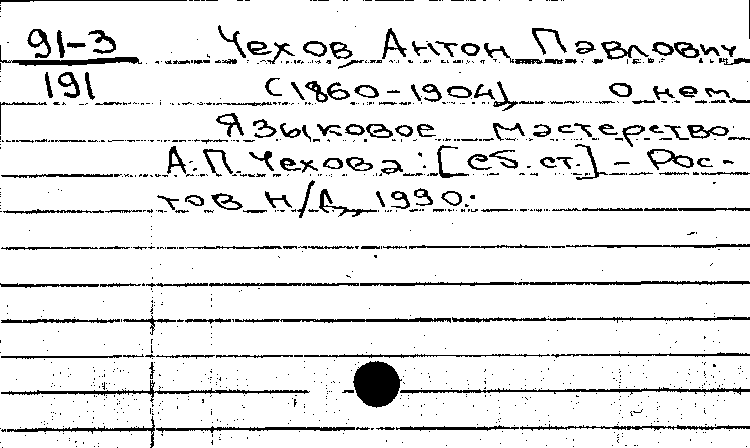 91-3 Чехов Антон Павлович
191 (1860-1904), о нем
Языковое мастерство
А.П. Чехова: [сб. ст.] - Рос-
тов н/Д, 1990.